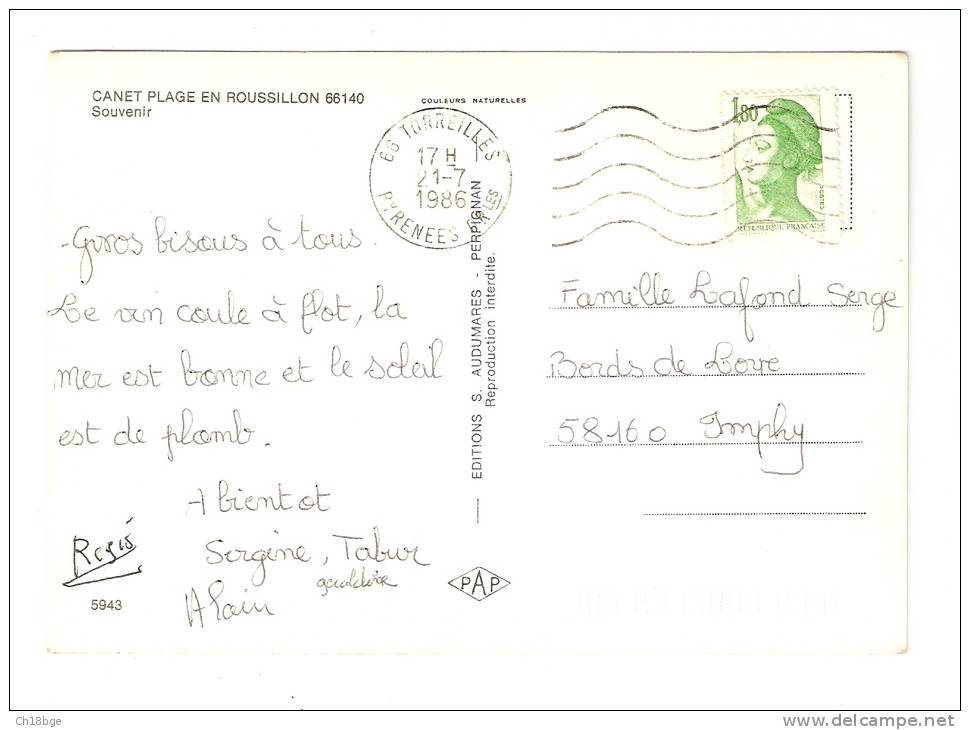 CANET PLAGE EN ROUSSILLON 66140
Souvenir
COULEURS NATURELLES
66 TORREILLES
17 H
21-7
1986
PYRENEES ORLES
1,80
POSTES
REPUBLIQUE FRANCAISE
Gros bisous à tous.
Le vin coule à flot, la
mer est bonne et le soleil
est de plomb.
A bientot
Sergine, Tabur
geraldine
Alain
Regis
5943
EDITIONS S. AUDUMARES - PERPIGNAN
Reproduction interdite.
PAP
Famille Lafond Serge
Bords de Loire
58160 Imphy
Ch18bge
www.delcampe.net